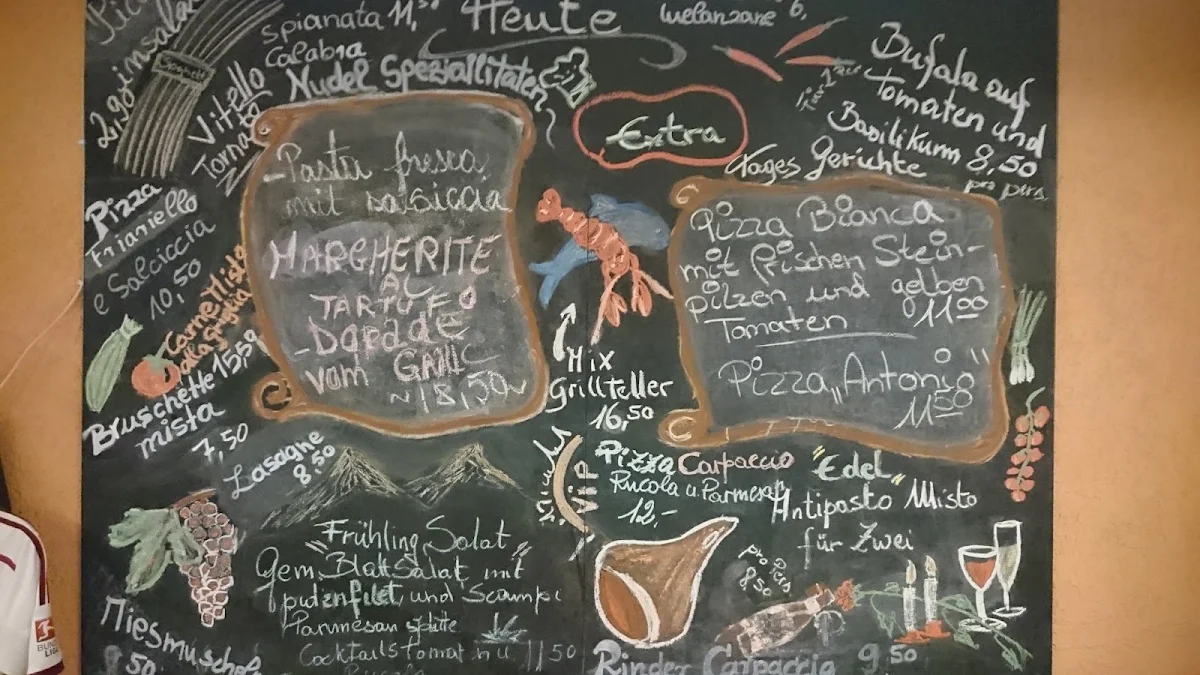 Heute
Spianata 11,50
Calabra
melanzane 6,
Spaghetti
Vitello
Tornato
Nudel Speziallitäten
Extra
Bufala auf
Tomaten und
Basilikum 8,50
pro pers.
Tages Gerichte
- Pasta fresca
mit salsiccia
MARGHERITE
AL
TARTUFO
- Dorade
vom GRILL
~18,50~
Pizza Bianca
mit frischen Stein-
pilzen und gelben
Tomaten 11,00
Pizza „Antonio"
11,50
Pizza
Friariello
e Salciccia
10,50
Carne Mista
alla Griglia
15,50
Bruschette
mista
7,50
Lasagne
8,50
Mix
Grillteller
16,50
VIP
Pizza Carpaccio
Rucola u. Parmesan
12,-
"Edel"
Antipasto Misto
für Zwei
pro Pers
8,50
"Frühling Salat"
Gem. Blattsalat mit
putenfilet und Scampi
Parmesan
11,50
Miesmuscheln
9,50
Rinder Carpaccio 9,50
BUNDES
LIGA